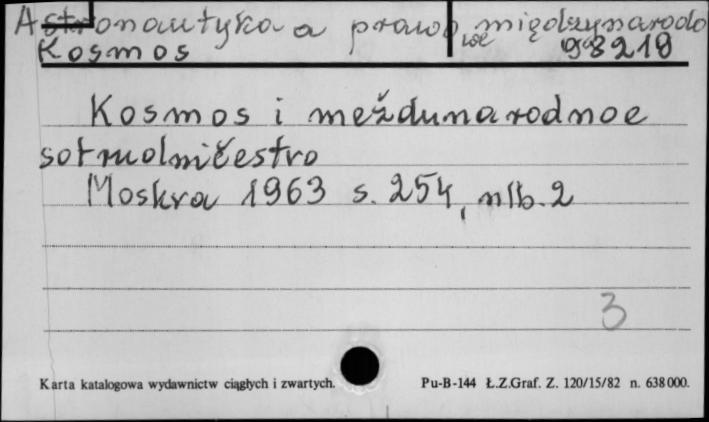 Astronautyka a prawo międzynarodowe
Kosmos 98219
Kosmos i meždunarodnoe
sotrudničestvo
Moskva 1963 s. 254, nlb. 2
3
Karta katalogowa wydawnictw ciągłych i zwartych. Pu-B-144 Ł.Z.Graf. Z. 120/15/82 n. 638000.